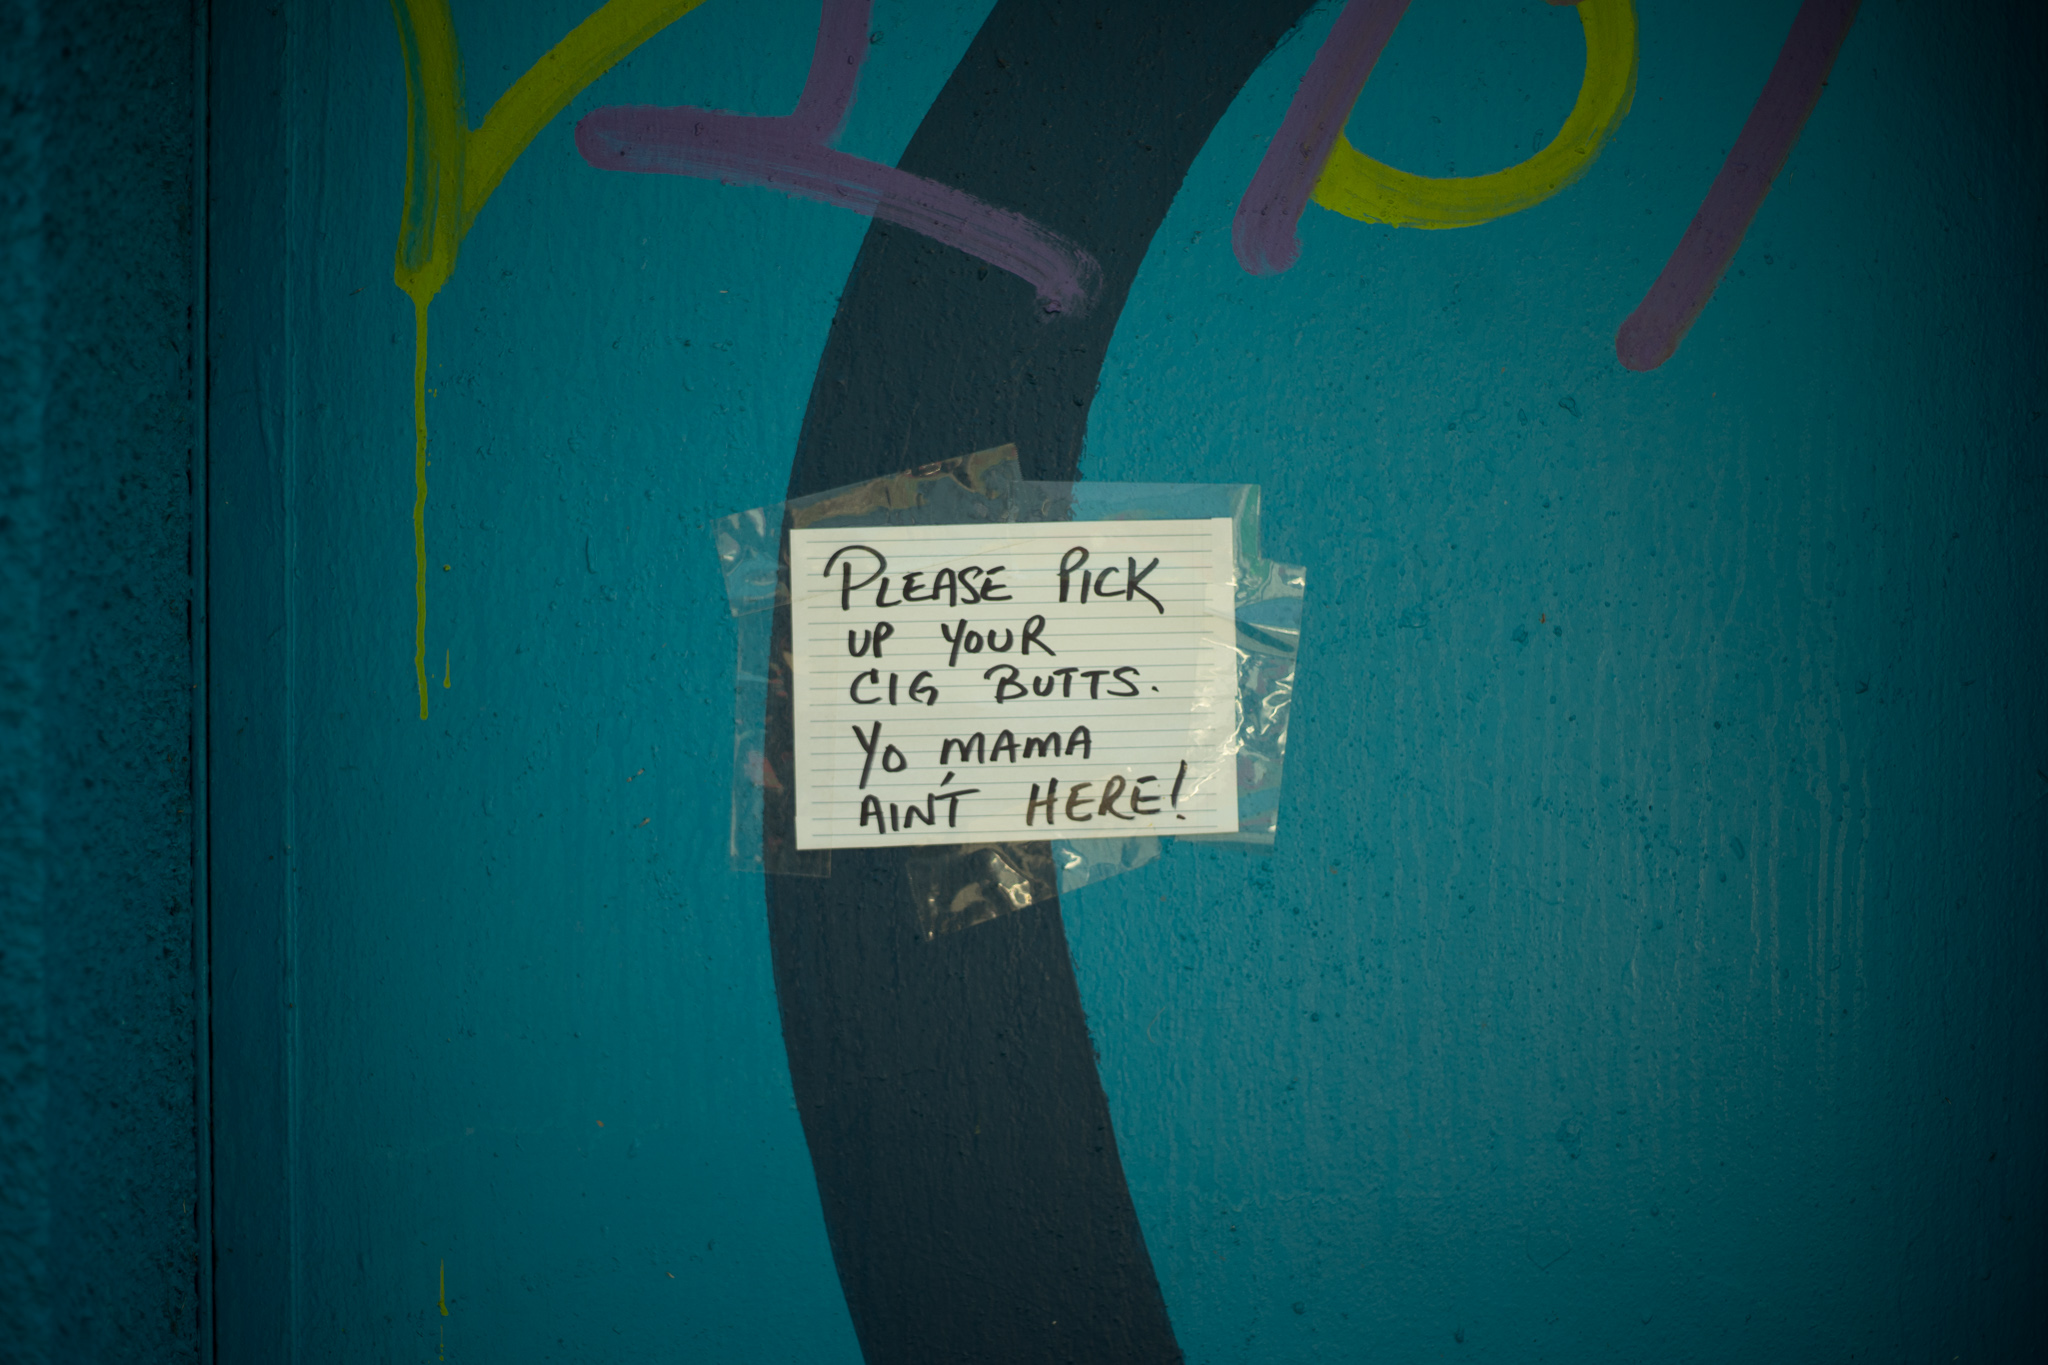 PLEASE PICK
UP YOUR
CIG BUTTS.
YO MAMA
AIN'T HERE!